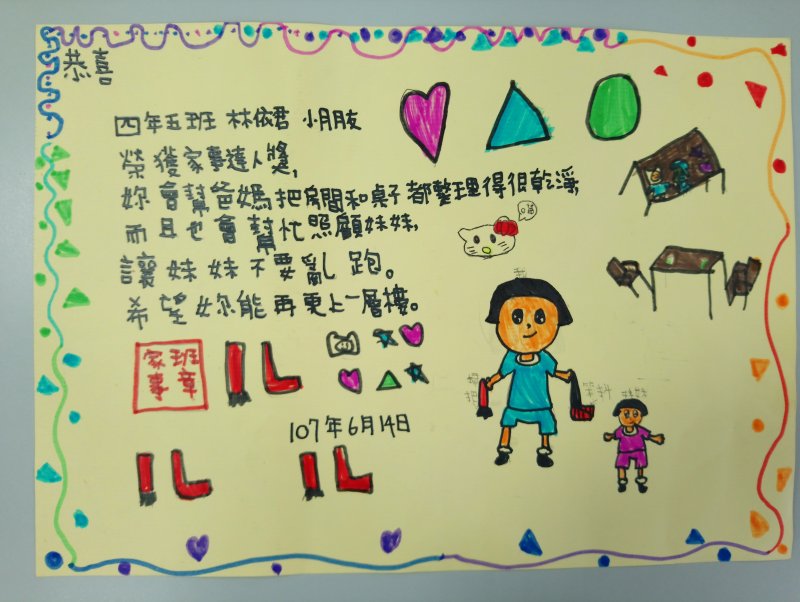 恭喜
四年五班 林依君 小朋友
榮獲家事達人獎,
妳會幫爸媽把房間和桌子都整理得很乾淨,
而且也會幫忙照顧妹妹,
讓妹妹不要亂跑。
希望妳能再更上一層樓。
喵
我
掃把
畚斗
妹妹
家事班章
107年6月14日